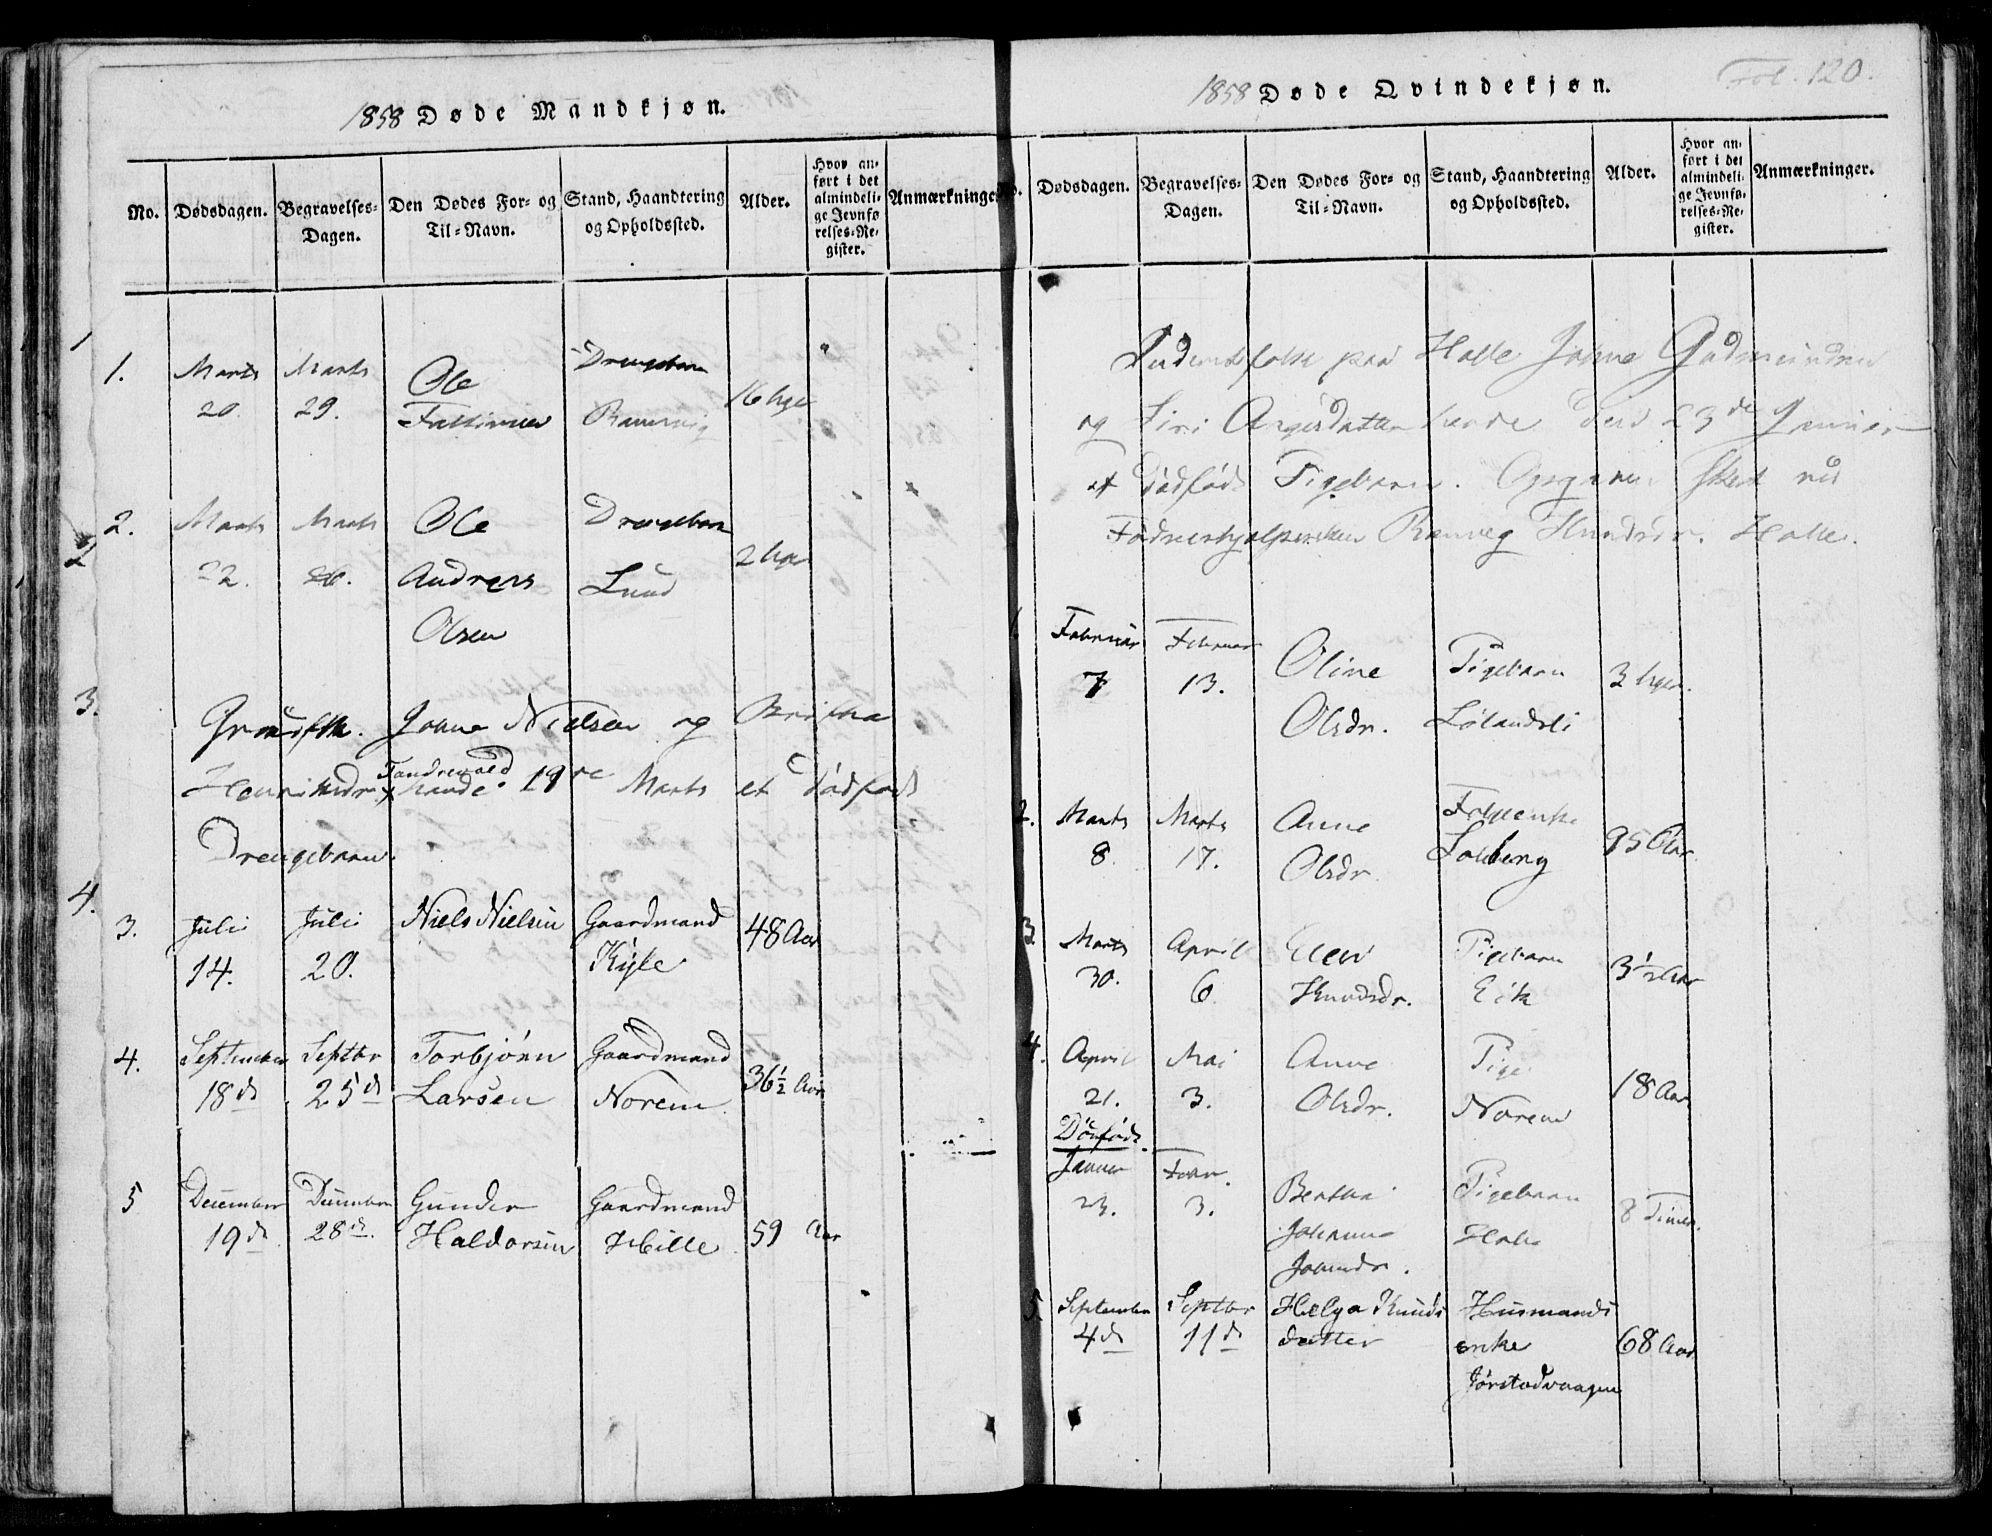 1858 Døde Mandkjøn.
No. Dødsdagen. Begravelses-Dagen. Den Dødes For- og Til-Navn. Stand, Haandtering og Opholdssted. Alder. Hvor anført i det almindelige Jevnførelses-Register. Anmærkninger
1. Marts 20. Marts 29. Ole Drengebarn 16 Uger
2. Marts 22. Marts 26. Ole Andreas Olsen Drengebarn Lund 2 Uger
3.
Johne Nielsen og
Tandrevold
havde 19de Marts et Dødfødt
Drengebarn.
4.
3. Juli 14. Juli 20. Niels Nielsen Gaardmand Kyle 48 Aar
4. September 18de Septbr 25de Torbjørn Larsen Gaardmand Norem 36½ Aar
5 December 19de December 28de Gunder Haldorsen Gaardmand Hille 59 Aar
Fol. 120.
1858 Døde Qvindekjøn.
No. Dødsdagen. Begravelses-Dagen. Den Dødes For- og Til-Navn. Stand, Haandtering og Opholdssted. Alder. Hvor anført i det almindelige Jevnførelses-Register. Anmærkninger.
paa Halle Johne Gudmundsen
og Siri havde den 23de Januar
et dødfødt Pigebarn. skeet ved
Fødselshjælpersken Knudsdr. Halle.
1. Februar 7 Februar 13. Oline Olsdr. Pigebarn Lølandsli 3 Uger.
2. Marts 8. Marts 17. Anne Olsdr. 95 Aar
3. Marts 30. April 6. Elen Knudsdr. Pigebarn Eik 3½ Aar
4. April 21. Mai 3. Anne Olsdr. Pige Norem 18 Aar
Dødfødt.
Januar 23. Febr. 3. Bertha Johanna Johnsdr. Pigebarn Halle 8 Timer.
5. September 4de Septbr 11de Helga Knudsdatter Husmandsenke Jørstadvaagen 68 Aar